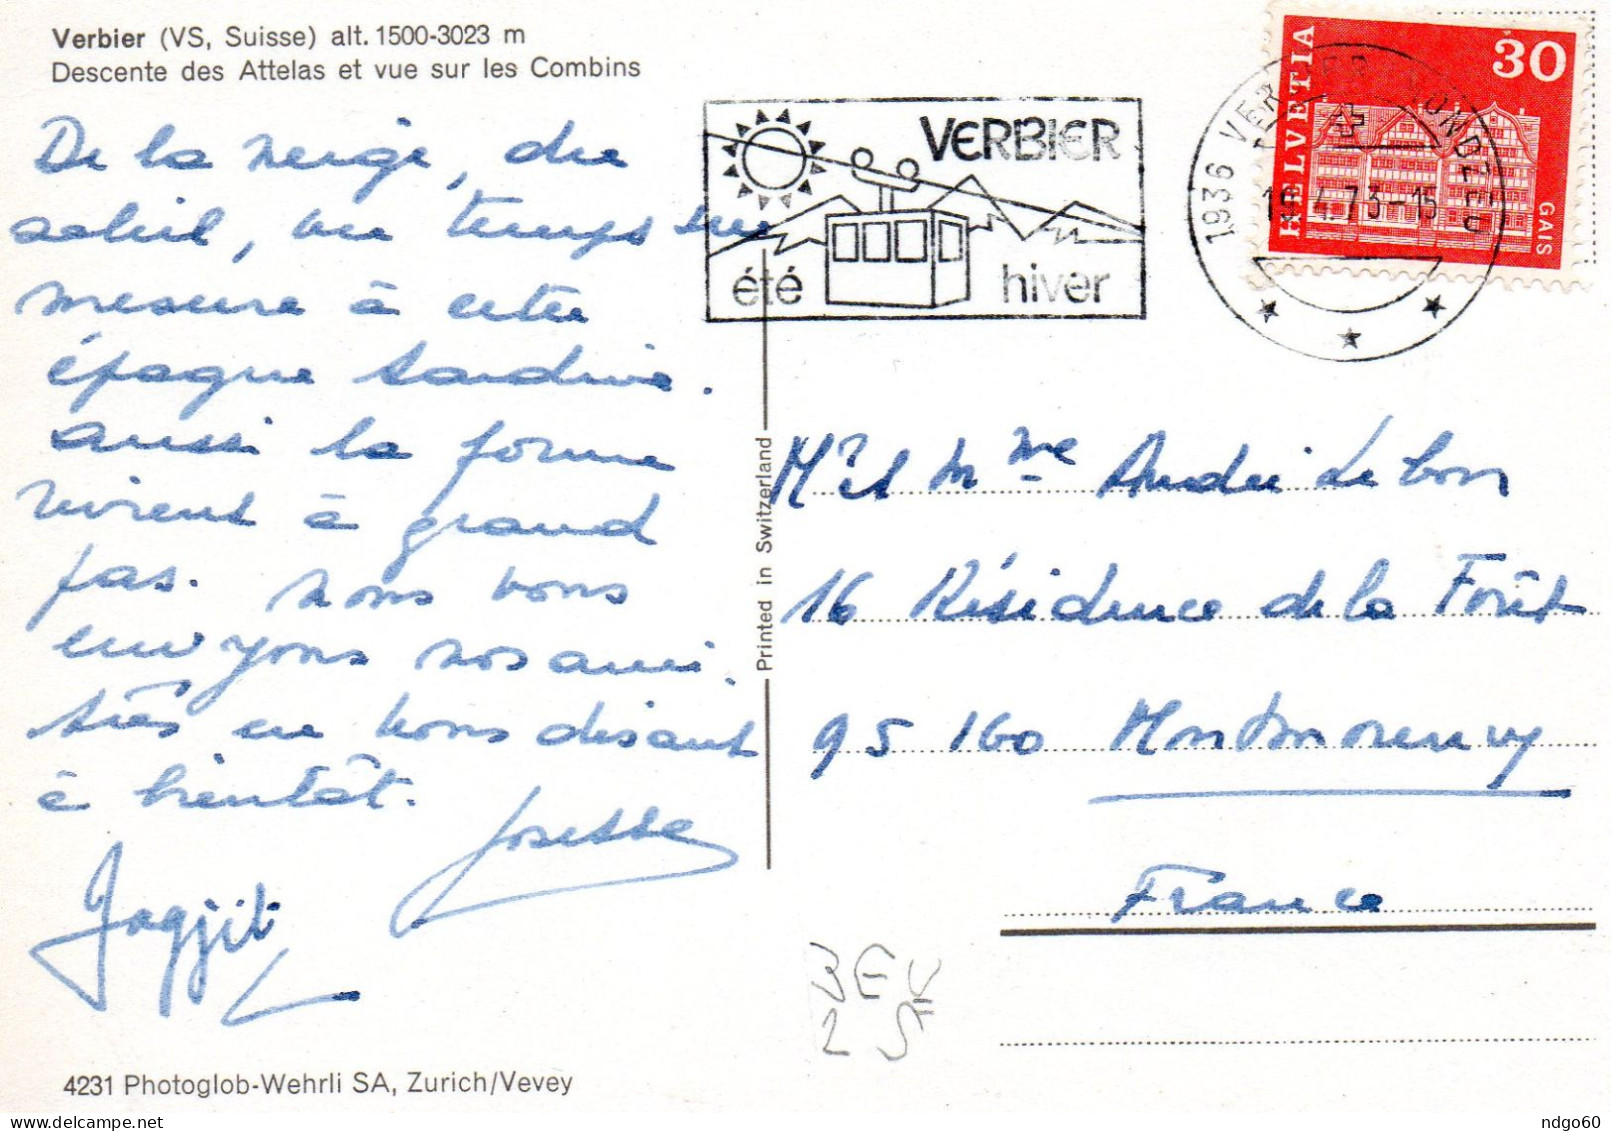 Verbier (VS, Suisse) alt. 1500-3023 m
Descente des Attelas et vue sur les Combins
De la neige, du
soleil, un temps sur
mesure à cette
époque tardive.
aussi la forme
revient à grand
pas. Nous vous
envoyons nos ami.
tiés en vous disant
à bientôt.
Josette
Jagjit
4231 Photoglob-Wehrli SA, Zurich/Vevey
Printed in Switzerland
VERBIER
été hiver
1936 VERBIER
19.4.73-15
HELVETIA
30
GAIS
Mr et Mme André Lebon
16 Résidence de la Forêt
95160 Montmorency
France
BEV
25
ndgo60